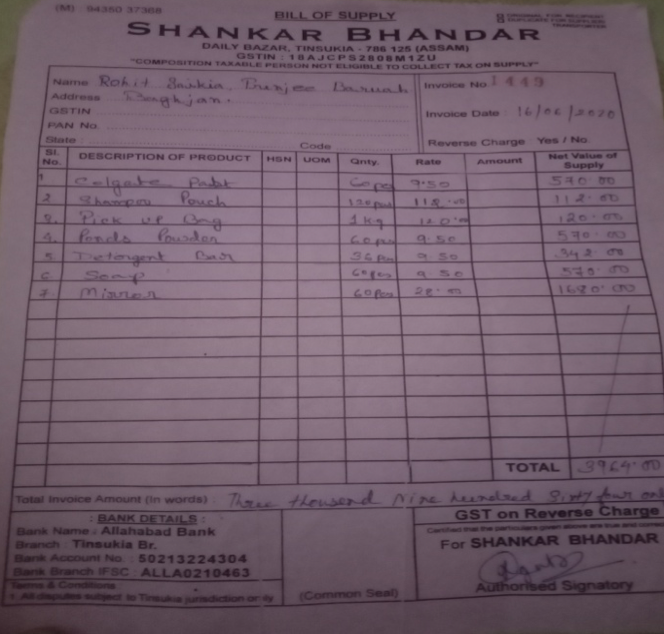 (M) 94350 37368
BILL OF SUPPLY
SHANKAR BHANDAR
DAILY BAZAR, TINSUKIA - 786 125 (ASSAM)
GSTIN : 18AJCPS2808M1ZU
"COMPOSITION TAXABLE PERSON NOT ELIGIBLE TO COLLECT TAX ON SUPPLY"
Name Rohit Saikia, Baruah
Address Baghjan.
GSTIN
PAN No.
State : Code
Invoice No. 1449
Invoice Date : 16/06/2020
Reverse Charge Yes / No
Sl. No. DESCRIPTION OF PRODUCT HSN UOM Qnty. Rate Amount Net Value of Supply
1 Colgate 60 pcs 9.50 570.00
2 Shampoo Pouch 112.00 112.00
3. Pick up Bag 1 kg 120.00 120.00
4. Ponds Powder 60 pcs 9.50 570.00
5 Detergent Bar 36 pcs 9.50 342.00
6 Soap 60 pcs 9.50 570.00
7. Mirror 60 pcs 28.00 1680.00
TOTAL 3964.00
Total Invoice Amount (In words) : Three thousand Nine hundred Sixty four
: BANK DETAILS :
Bank Name : Allahabad Bank
Branch : Tinsukia Br.
Bank Account No. : 50213224304
Bank Branch IFSC : ALLA0210463
Terms & Conditions
1. All disputes subject to Tinsukia jurisdiction only
(Common Seal)
GST on Reverse Charge
Certified that the particulars given above are true and correct
For SHANKAR BHANDAR
Authorised Signatory